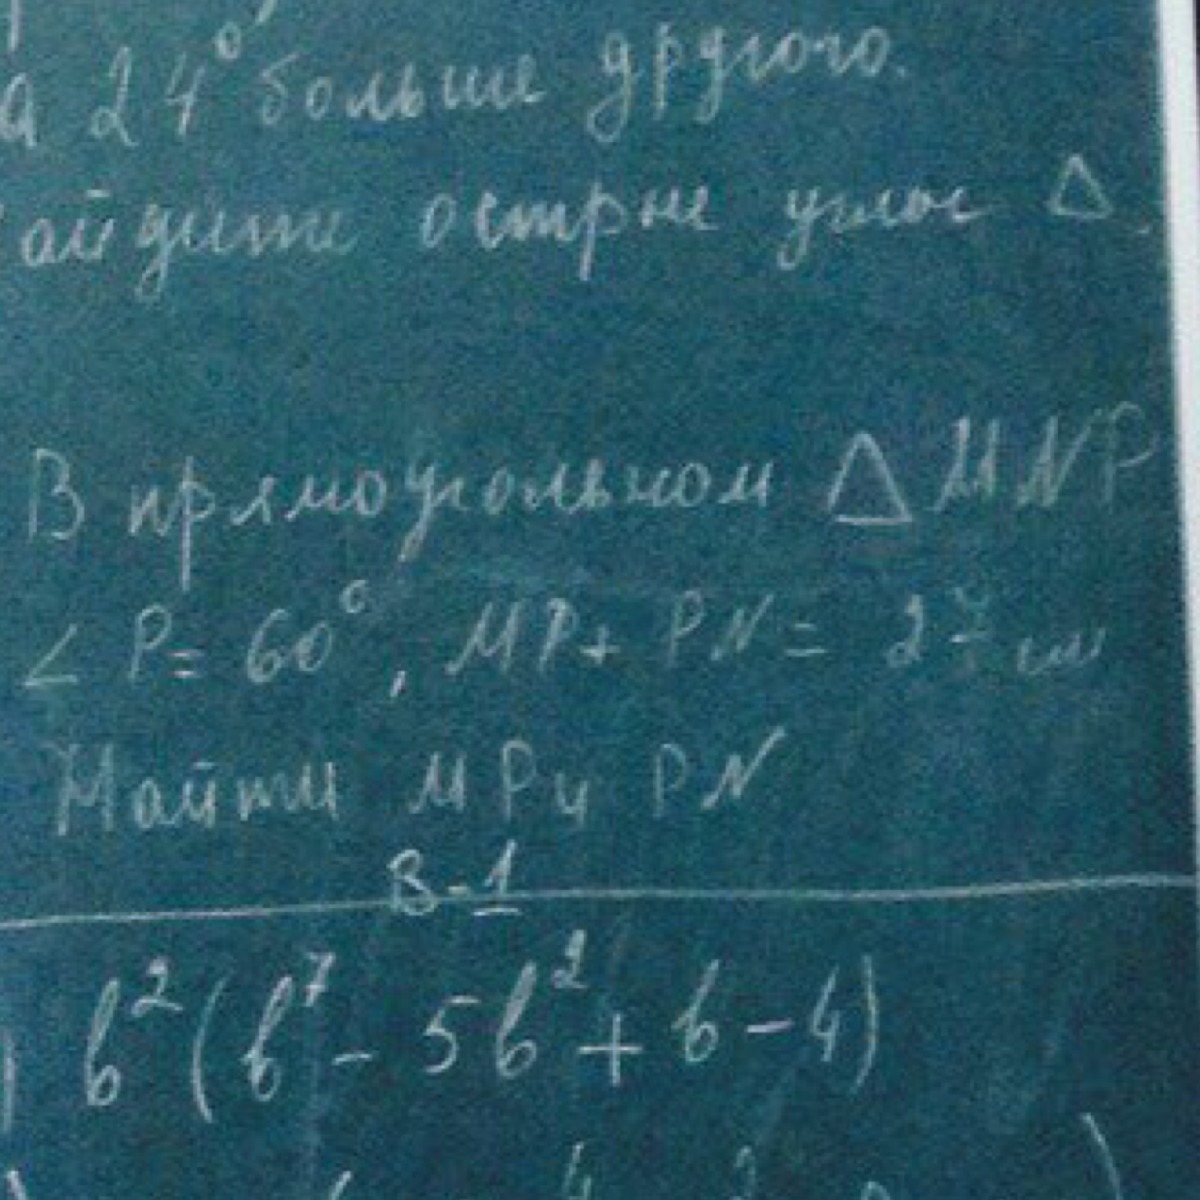 а 24° больше другого.
айдите острые углы Δ.
В прямоугольном Δ MNP
∠ P = 60°, MP + PN = 27 см
Найти MP и PN
В-1
) b²(b⁷ - 5b² + b - 4)